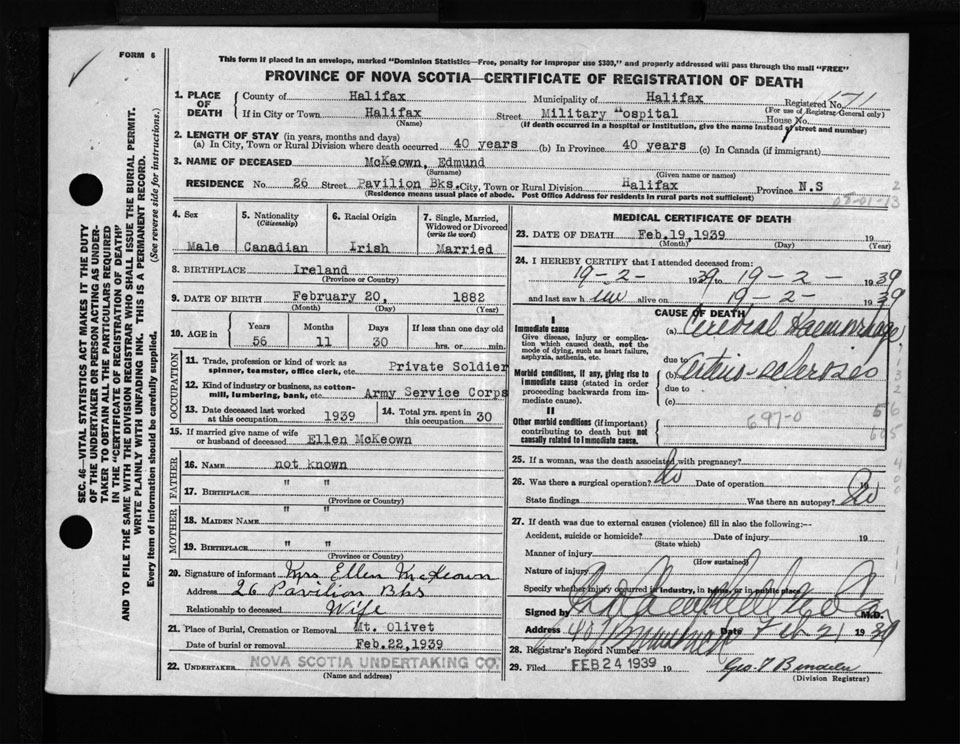 FORM 6
This form if placed in an envelope, marked "Dominion Statistics—Free, penalty for improper use $300," and properly addressed will pass through the mail "FREE"
PROVINCE OF NOVA SCOTIA—CERTIFICATE OF REGISTRATION OF DEATH
SEC. 46—VITAL STATISTICS ACT MAKES IT THE DUTY
OF THE UNDERTAKER OR PERSON ACTING AS UNDER-
TAKER TO OBTAIN ALL THE PARTICULARS REQUIRED
IN THE "CERTIFICATE OF REGISTRATION OF DEATH"
AND TO FILE THE SAME WITH THE DIVISION REGISTRAR WHO SHALL ISSUE THE BURIAL PERMIT.
WRITE PLAINLY WITH UNFADING INK. THIS IS A PERMANENT RECORD.
Every item of information should be carefully supplied. (See reverse side for instructions.)
1. PLACE OF DEATH County of Halifax Municipality of Halifax Registered No. 171
(For use of Registrar-General only)
If in City or Town Halifax Street Military Hospital House No.
(Name) (If death occurred in a hospital or institution, give the name instead of street and number)
2. LENGTH OF STAY (in years, months and days)
(a) In City, Town or Rural Division where death occurred 40 years (b) In Province 40 years (c) In Canada (if immigrant)
3. NAME OF DECEASED McKeown, Edmund
(Surname) (Given name or names)
RESIDENCE No. 26 Street Pavilion Bks. City, Town or Rural Division Halifax Province N.S
(Residence means usual place of abode. Post Office Address for residents in rural parts not sufficient)
4. Sex Male
5. Nationality (Citizenship) Canadian
6. Racial Origin Irish
7. Single, Married, Widowed or Divorced (write the word) Married
8. BIRTHPLACE Ireland
(Province or Country)
9. DATE OF BIRTH February 20, 1882
(Month) (Day) (Year)
10. AGE in Years 56 Months 11 Days 30 If less than one day old hrs. or min.
OCCUPATION
11. Trade, profession or kind of work as spinner, teamster, office clerk, etc. Private Soldier
12. Kind of industry or business, as cotton-mill, lumbering, bank, etc. Army Service Corps
13. Date deceased last worked at this occupation 1939
14. Total yrs. spent in this occupation 30
15. If married give name of wife or husband of deceased Ellen McKeown
FATHER
16. NAME not known
17. BIRTHPLACE " "
(Province or Country)
MOTHER
18. MAIDEN NAME " "
19. BIRTHPLACE " "
(Province or Country)
20. Signature of informant Mrs Ellen McKeown
Address 26 Pavilion Bks
Relationship to deceased Wife
21. Place of Burial, Cremation or Removal Mt. Olivet
Date of burial or removal Feb.22,1939
22. UNDERTAKER NOVA SCOTIA UNDERTAKING CO.
(Name and address)
MEDICAL CERTIFICATE OF DEATH
23. DATE OF DEATH Feb.19,1939 19
(Month) (Day) (Year)
24. I HEREBY CERTIFY that I attended deceased from:
19-2- 1939 to 19-2- 1939
and last saw h im alive on 19-2- 1939
CAUSE OF DEATH
I
Immediate cause
Give disease, injury or complication which caused death, not the mode of dying, such as heart failure, asphyxia, asthenia, etc.
(a) Cerebral Haemorrhage
due to
Morbid conditions, if any, giving rise to immediate cause (stated in order proceeding backwards from immediate cause).
(b) Arterio-sclerosis
due to
(c)
II
Other morbid conditions (if important) contributing to death but not causally related to immediate cause.
697-0
25. If a woman, was the death associated with pregnancy?
26. Was there a surgical operation? No Date of operation 19
State findings Was there an autopsy? No
27. If death was due to external causes (violence) fill in also the following:—
Accident, suicide or homicide? Date of injury 19
(State which)
Manner of injury
(How sustained)
Nature of injury
Specify whether injury occurred in industry, in home, or in public place
Signed by M.D.
Address Date Feb 21 1939
28. Registrar's Record Number
29. Filed FEB 24 1939 19
(Division Registrar)